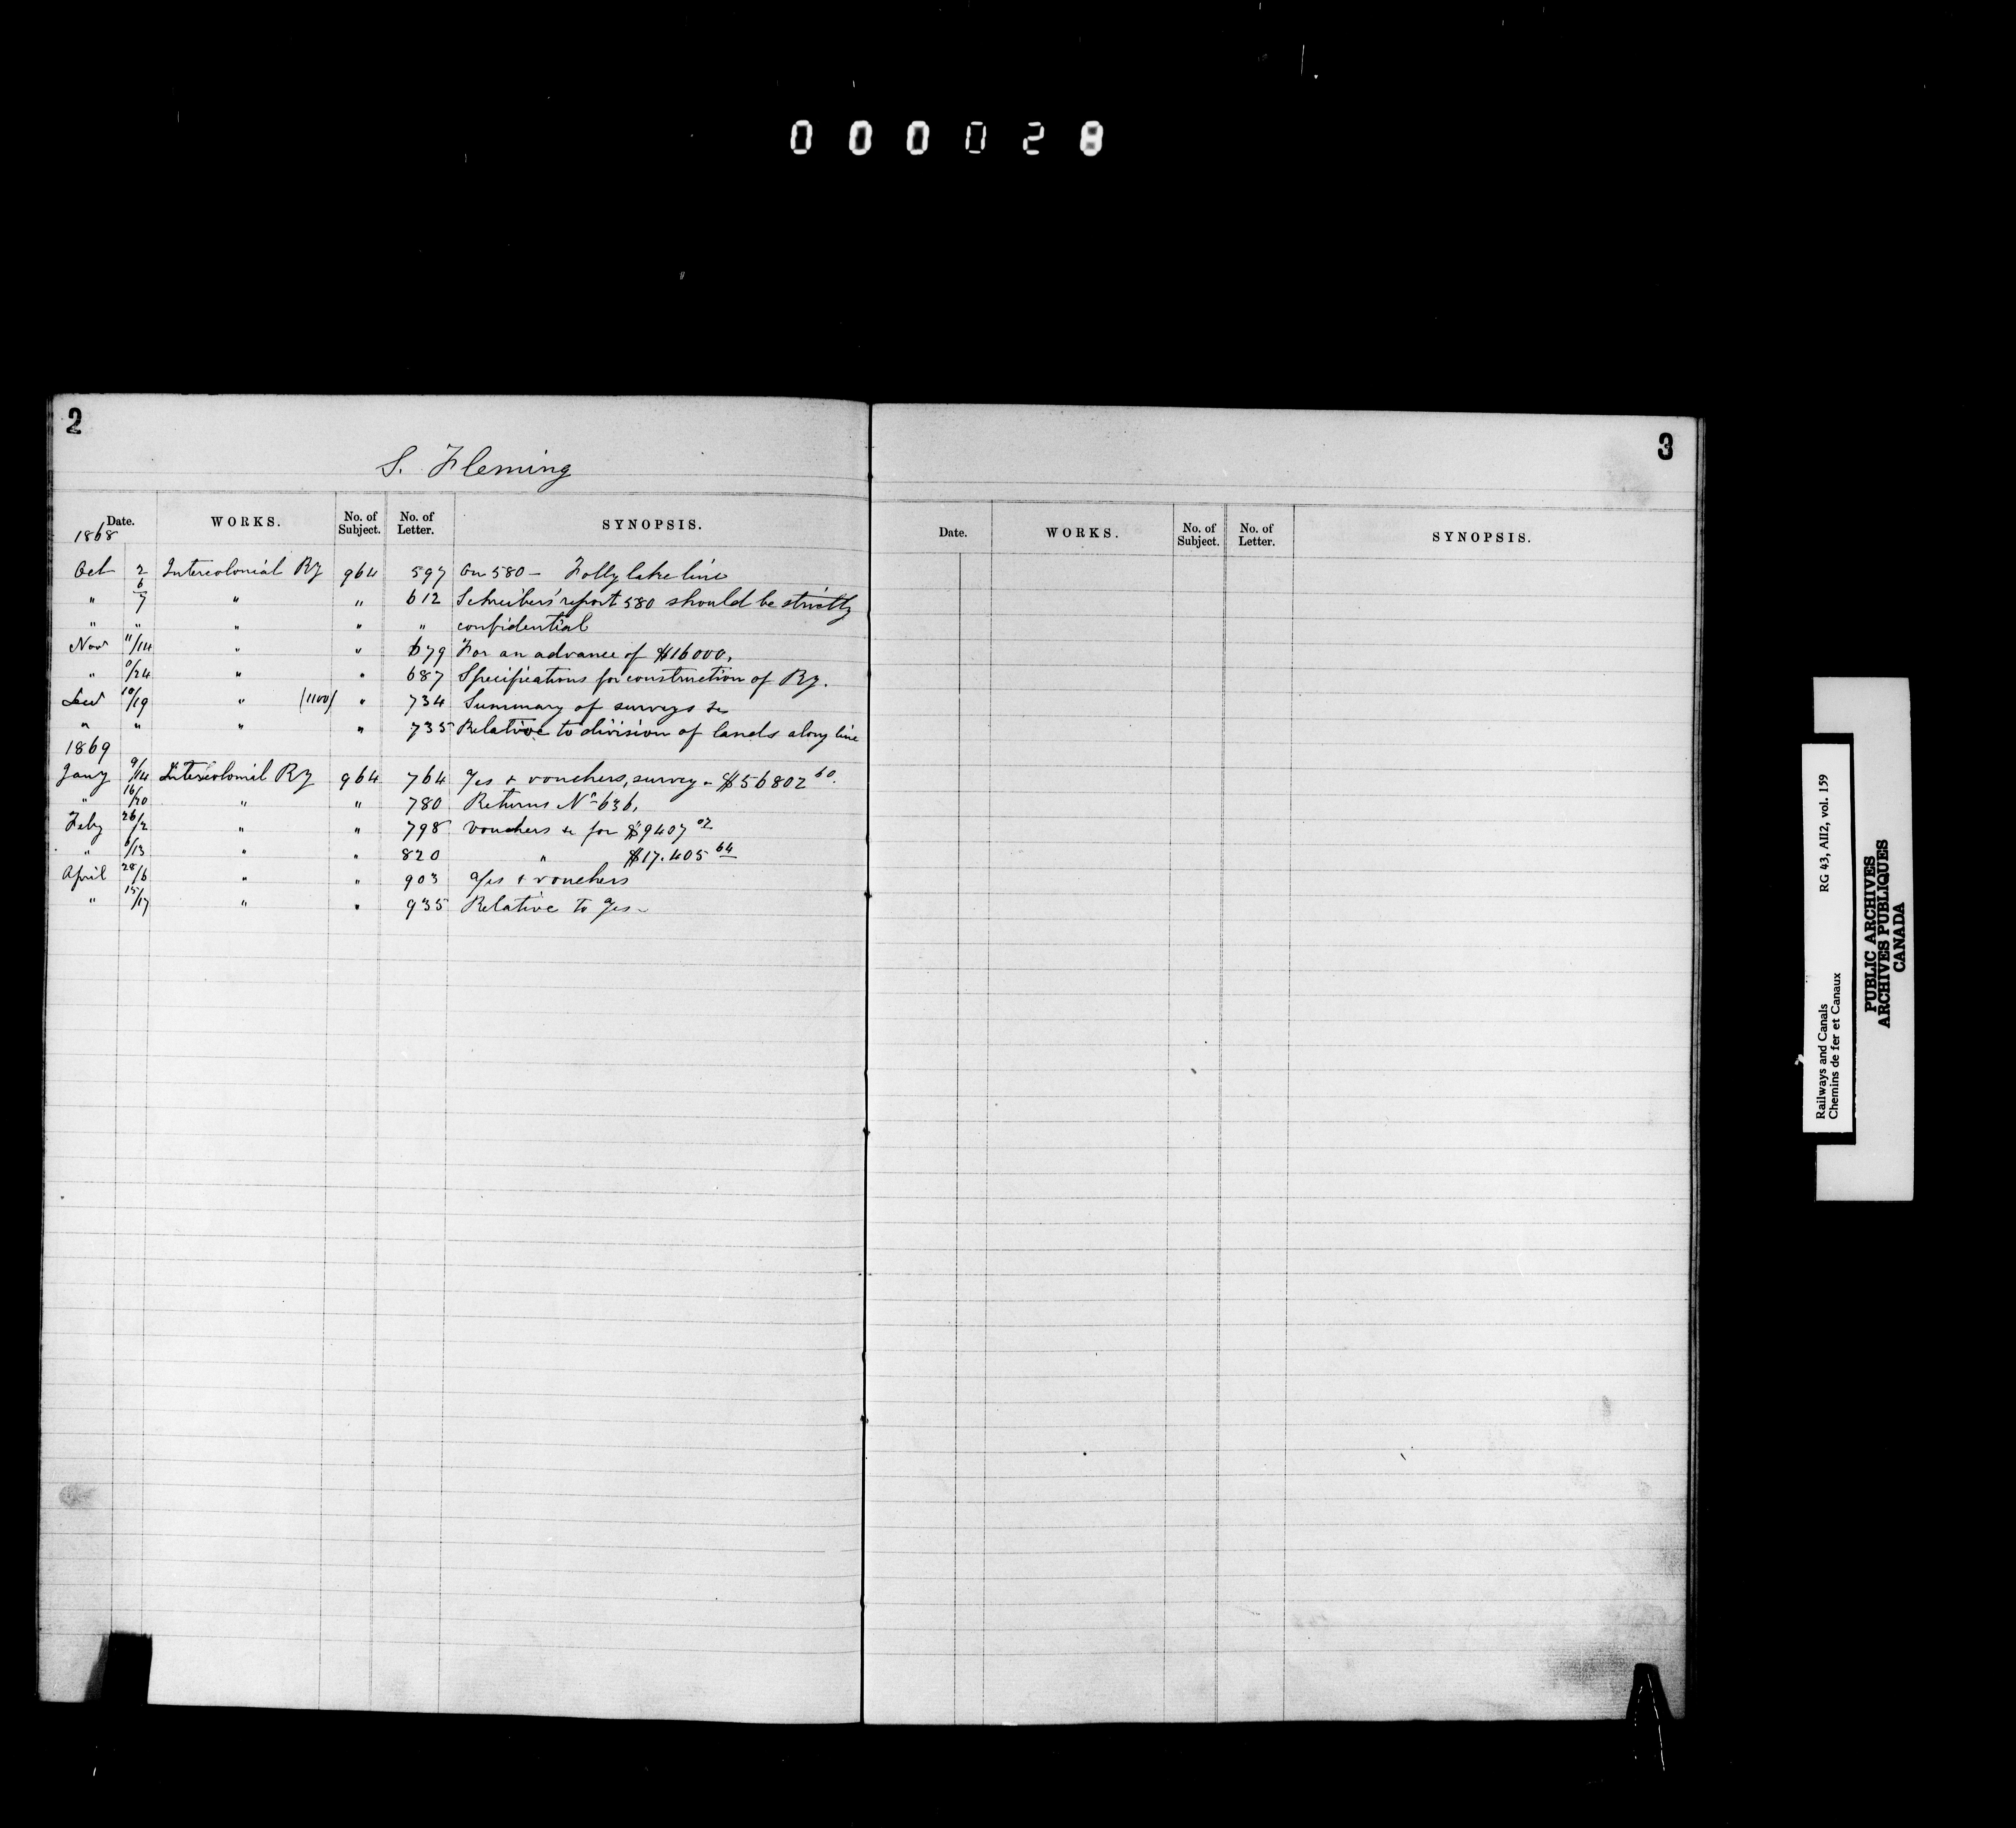 000028
2
S. Fleming
Date. WORKS. No. of Subject. No. of Letter. SYNOPSIS.
1868
Oct 2 Intercolonial Ry 964 597 On 580 - Folly lake line
" 6/7 " " 612 Schreibers' report 580 should be strictly
" " " " " confidential
Nov 11/14 " " 679 For an advance of $16000,
" /24 " " 687 Specifications for construction of Ry.
Dec 10/19 " (1100) " 734 Summary of surveys &c
" " " " 735 Relative to division of lands along line
1869
Jany 9/14 Intercolonial Ry 964 764 a/cs & vouchers, survey - $56802 60.
" 16/20 " " 780 Returns No 636,
Feby 26/2 " " 798 Vouchers &c for $9407 02
" /13 " " 820 " $17.405 64
April 28/6 " " 903 a/cs & vouchers
" 15/17 " " 935 Relative to a/cs -
3
Date. WORKS. No. of Subject. No. of Letter. SYNOPSIS.
Railways and Canals RG 43, AII2, vol. 159
Chemins de fer et Canaux
PUBLIC ARCHIVES
ARCHIVES PUBLIQUES
CANADA